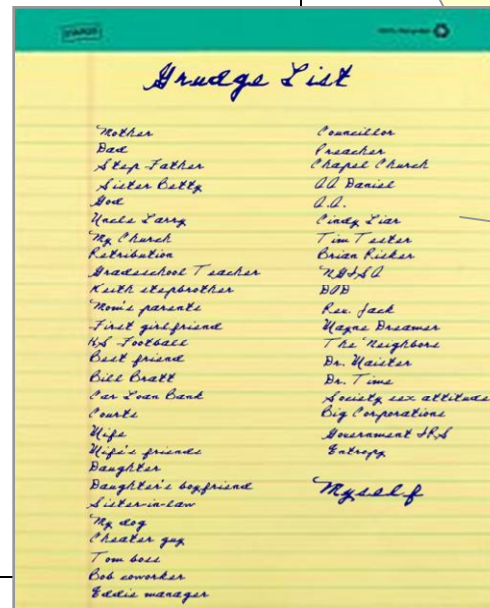 STAPLES
Grudge List
Mother
Dad
Step Father
Sister Betty
God
Uncle Larry
My Church
Retribution
Gradeschool Teacher
Keith stepbrother
Mom's parents
First girlfriend
HS Football
Best friend
Bill Bratt
Car Loan Bank
Courts
Wife
Wife's friends
Daughter
Daughter's boyfriend
Sister-in-law
My dog
Cheater guy
Tom boss
Bob coworker
Eddie manager
Councillor
Preacher
Chapel Church
AA Daniel
A.A.
Cindy Liar
Tim Tester
Brian Risker
Rev. Jack
Wayne Dreamer
The Neighbors
Dr. Waister
Dr. Time
Society sex attitudes
Big Corporations
Government IRS
Entropy
Myself